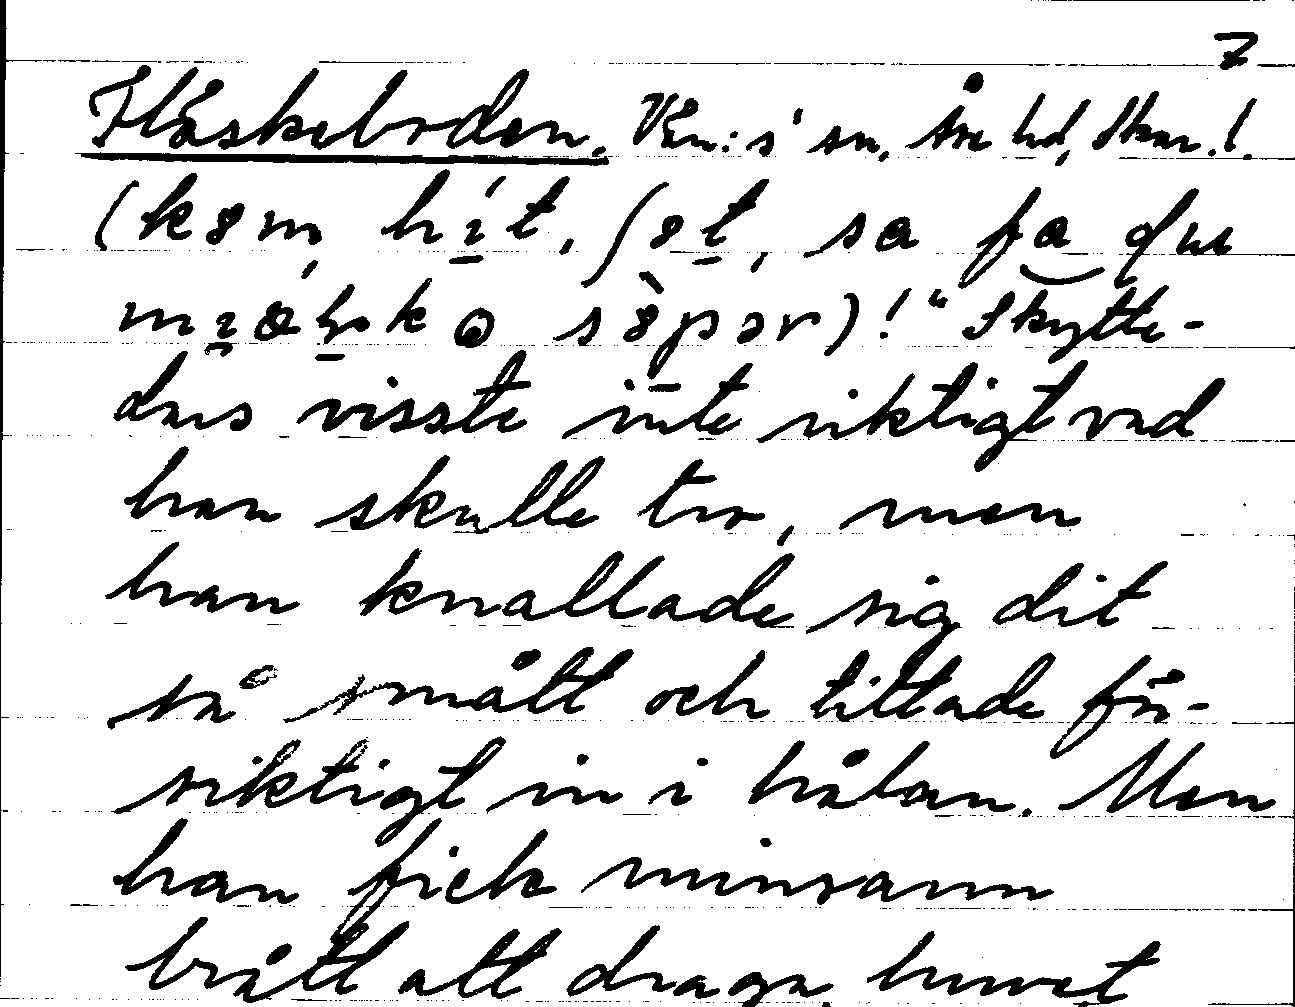 7
Fläskeboden. Vn:s' sn, Åre hd, Skar.l.
(kɷm hit, ʃɷt, sa fa du
mɷrkɷ sɷpər)!" Skytte-
dus visste inte riktigt vad
han skulle tro, men
han knallade sig dit
så smått och tittade för-
siktigt in i hålan. Men
han fick minsann
brått att draga huvet